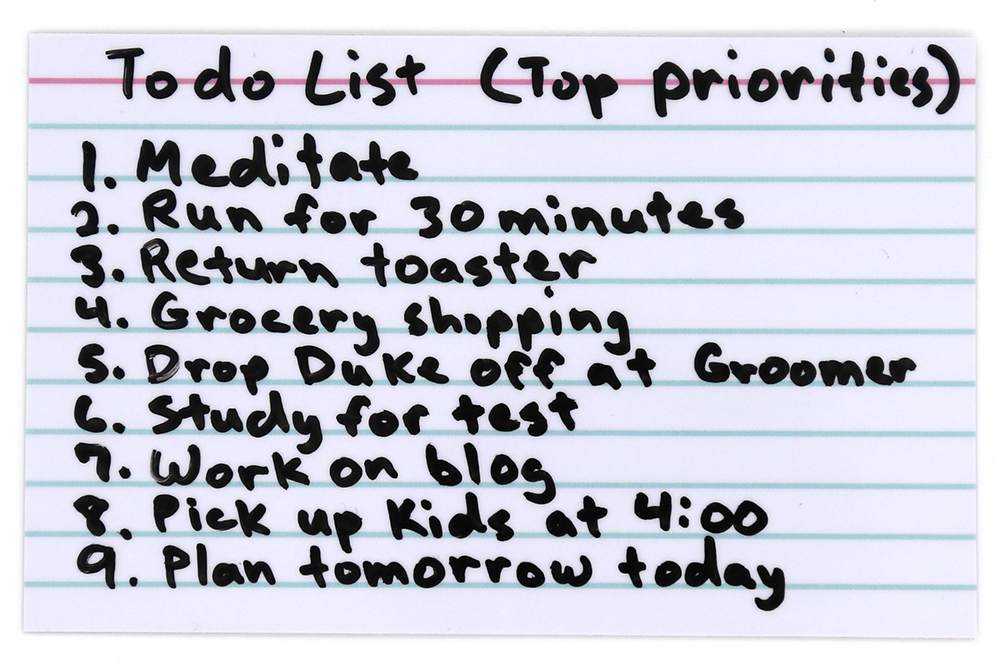 Todo List (Top priorities)
1. Meditate
2. Run for 30 minutes
3. Return toaster
4. Grocery shopping
5. Drop Duke off at Groomer
6. Study for test
7. Work on blog
8. Pick up Kids at 4:00
9. Plan tomorrow today